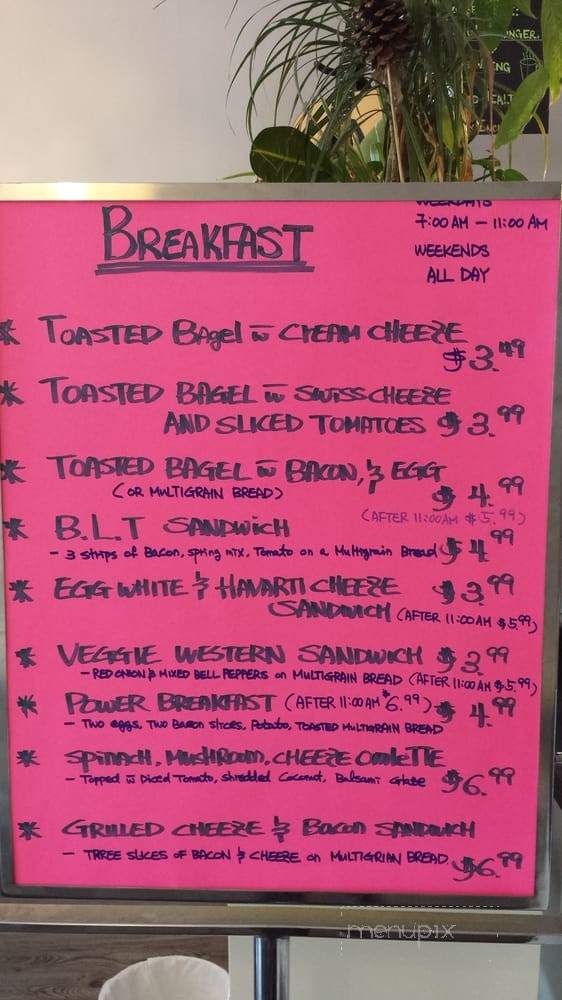 NGER.
BREAKFAST
WEEKDAYS
7:00 AM — 11:00 AM
WEEKENDS
ALL DAY
* TOASTED BAgel w̅ CREAM CHEEZE
$3.49
* TOASTED BAGEL w̅ SWISS CHEEZE
AND SLICED TOMATOES $3.99
* TOASTED BAGEL w̅ BACON, & EGG
(OR MULTIGRAIN BREAD) $4.99
(AFTER 11:00AM $5.99)
* B.L.T SANDWICH
- 3 strips of Bacon, spring mix, Tomato on a Multigrain Bread $4.99
* EGG WHITE & HAVARTI CHEEZE $3.99
SANDWICH (AFTER 11:00 AM $5.99)
* VEGGIE WESTERN SANDWICH $3.99
- RED ONION & MIXED BELL PEPPERS on MULTIGRAIN BREAD (AFTER 11:00 AM $5.99)
* POWER BREAKFAST (AFTER 11:00 AM $6.99) $4.99
- Two eggs, Two Bacon slices, Potato, TOASTED MULTIGRAIN BREAD
* SPINACH, MUSHROOM, CHEEZE OMLETTE
- Topped w̅ Diced Tomato, shredded Coconut, Balsamic Glaze $6.99
* GRILLED CHEEZE & Bacon SANDWICH
- TRREE SLICES OF BACON & CHEEZE on MULTIGRIAN BREAD $6.99
menupix